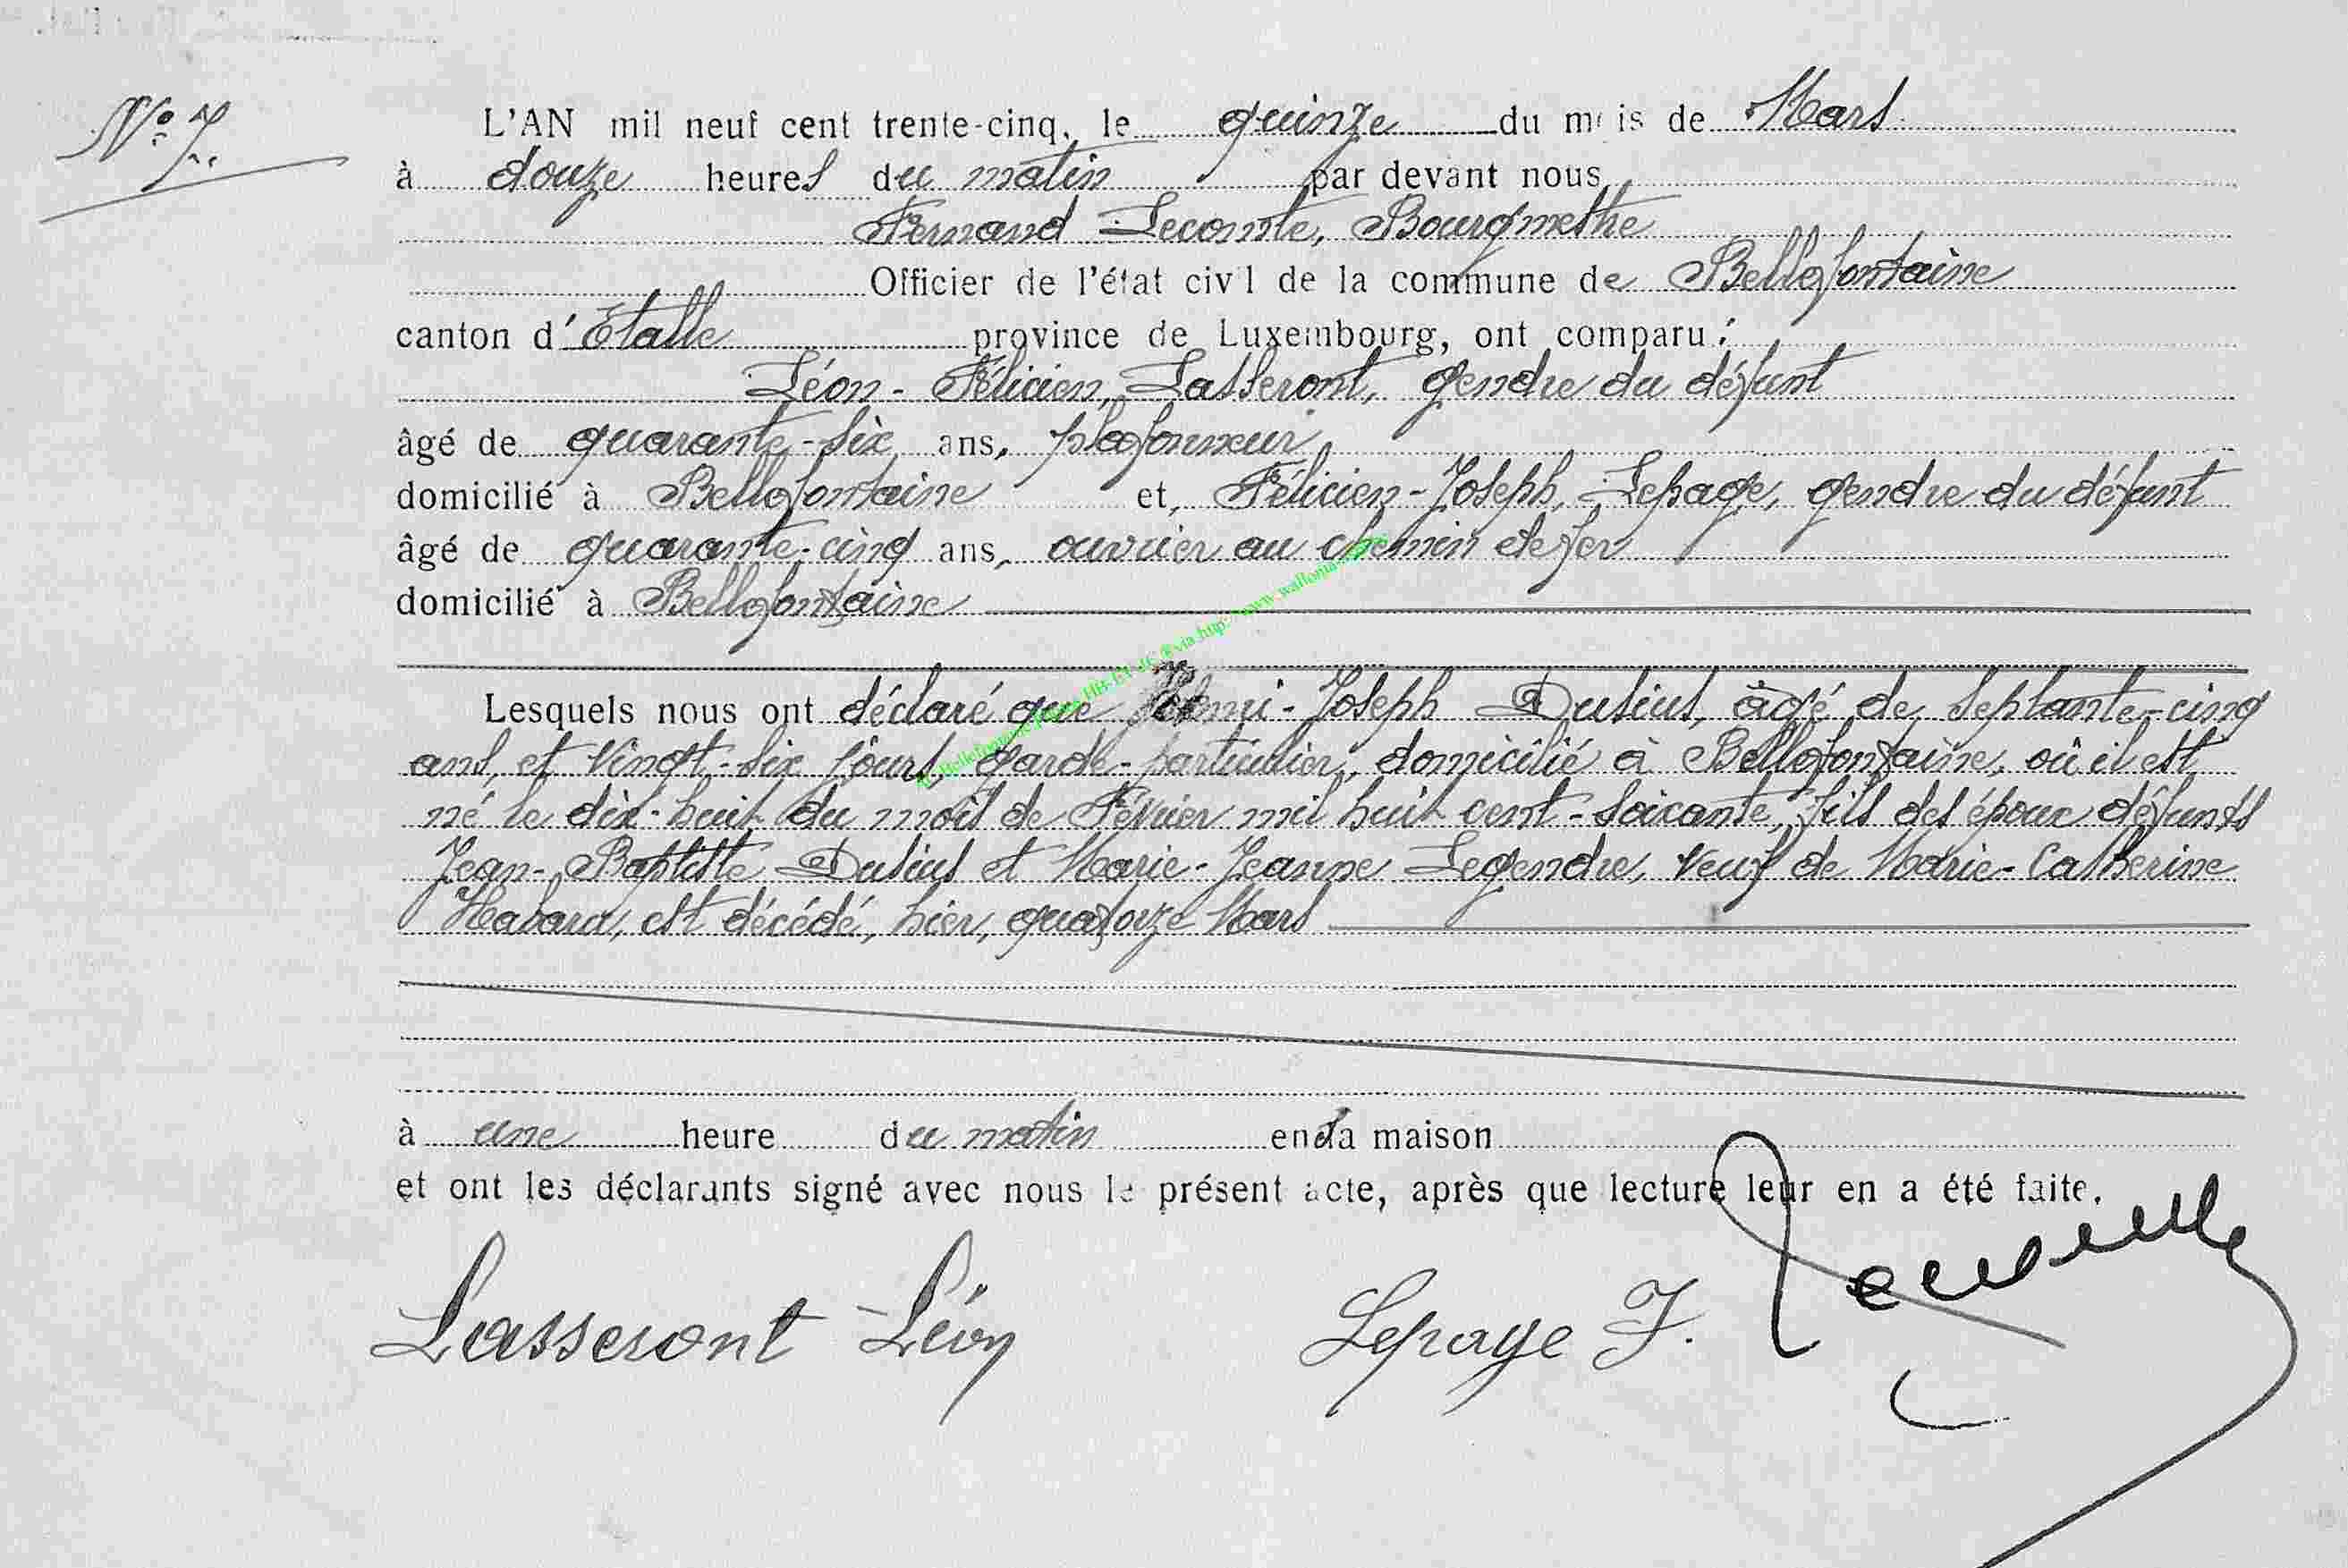 N° 7.
L'AN mil neuf cent trente-cinq, le quinze du mois de Mars
à douze heures du matin par devant nous
Fernand Lecomte, Bourgmestre
Officier de l'état civil de la commune de Bellefontaine
canton d'Etalle province de Luxembourg, ont comparu :
Léon-Félicien, Lasseront, gendre du défunt
âgé de quarante-six ans, plafonneur
domicilié à Bellefontaine et, Félicien-Joseph, Lepage, gendre du défunt
âgé de quarante-cinq ans, ouvrier au chemin de fer
domicilié à Bellefontaine
Lesquels nous ont déclaré que Joseph Dusius, âgé de septante-cinq
ans, et vingt-six jours, garde-particulier, domicilié à Bellefontaine, où il est
né le dix-huit du mois de Février mil huit cent-soixante, fils des époux défunts
Jean-Baptiste Dusius et Marie-Jeanne Legendre, veuf de Marie-Catherine
Habara, est décédé, hier, quatorze Mars
à une heure du matin en sa maison
et ont les déclarants signé avec nous le présent acte, après que lecture leur en a été faite.
Lasseront Léon Lepage F. Lecomte